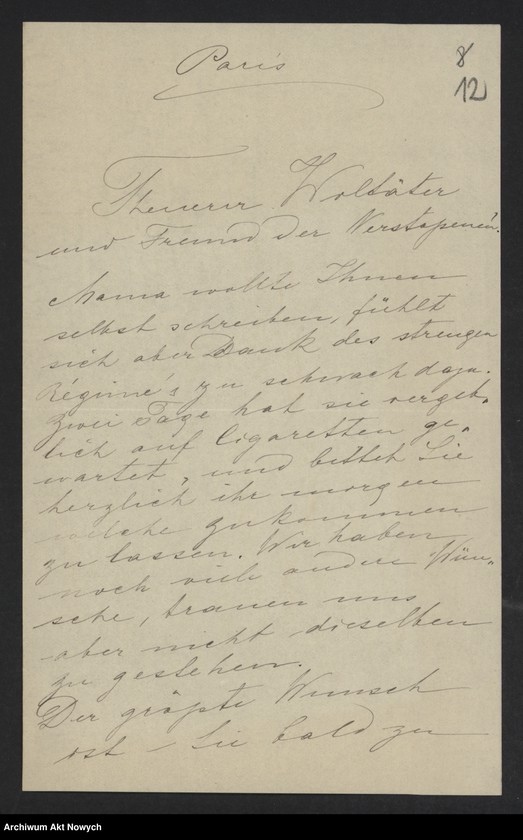 Paris
8
12
Theurer Woltäter
und Freund der Verstopenen!
Mama wollte Ihnen
selbst schreiben, fühlt
sich aber Dank des strengen
Régime's zu schwach dazu.
Zwei Tage hat sie vergeb„
lich auf Cigaretten ge„
wartet, und bittet Sie
herzlich ihr morgen
welche zukommen
zu lassen. Wir haben
noch viele andere Wün„
sche, trauen uns
aber nicht dieselben
zu gestehen.
Der größte Wunsch
ist – Sie bald zu
Archiwum Akt Nowych